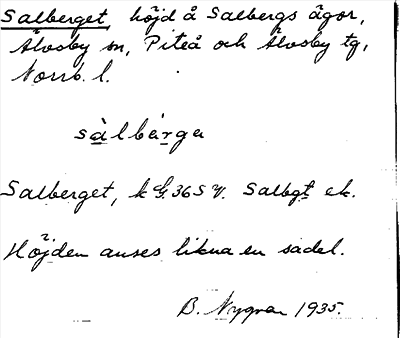 Salberget, höjd å Salbergs ägor,
Älvsby sn, Piteå och Älvsby tg,
Norrb. l.
sàlbärga
Salberget, k G. 36 S V. Salbgt ek.
Höjden anses likna en sadel.
B. Nygren 1935.